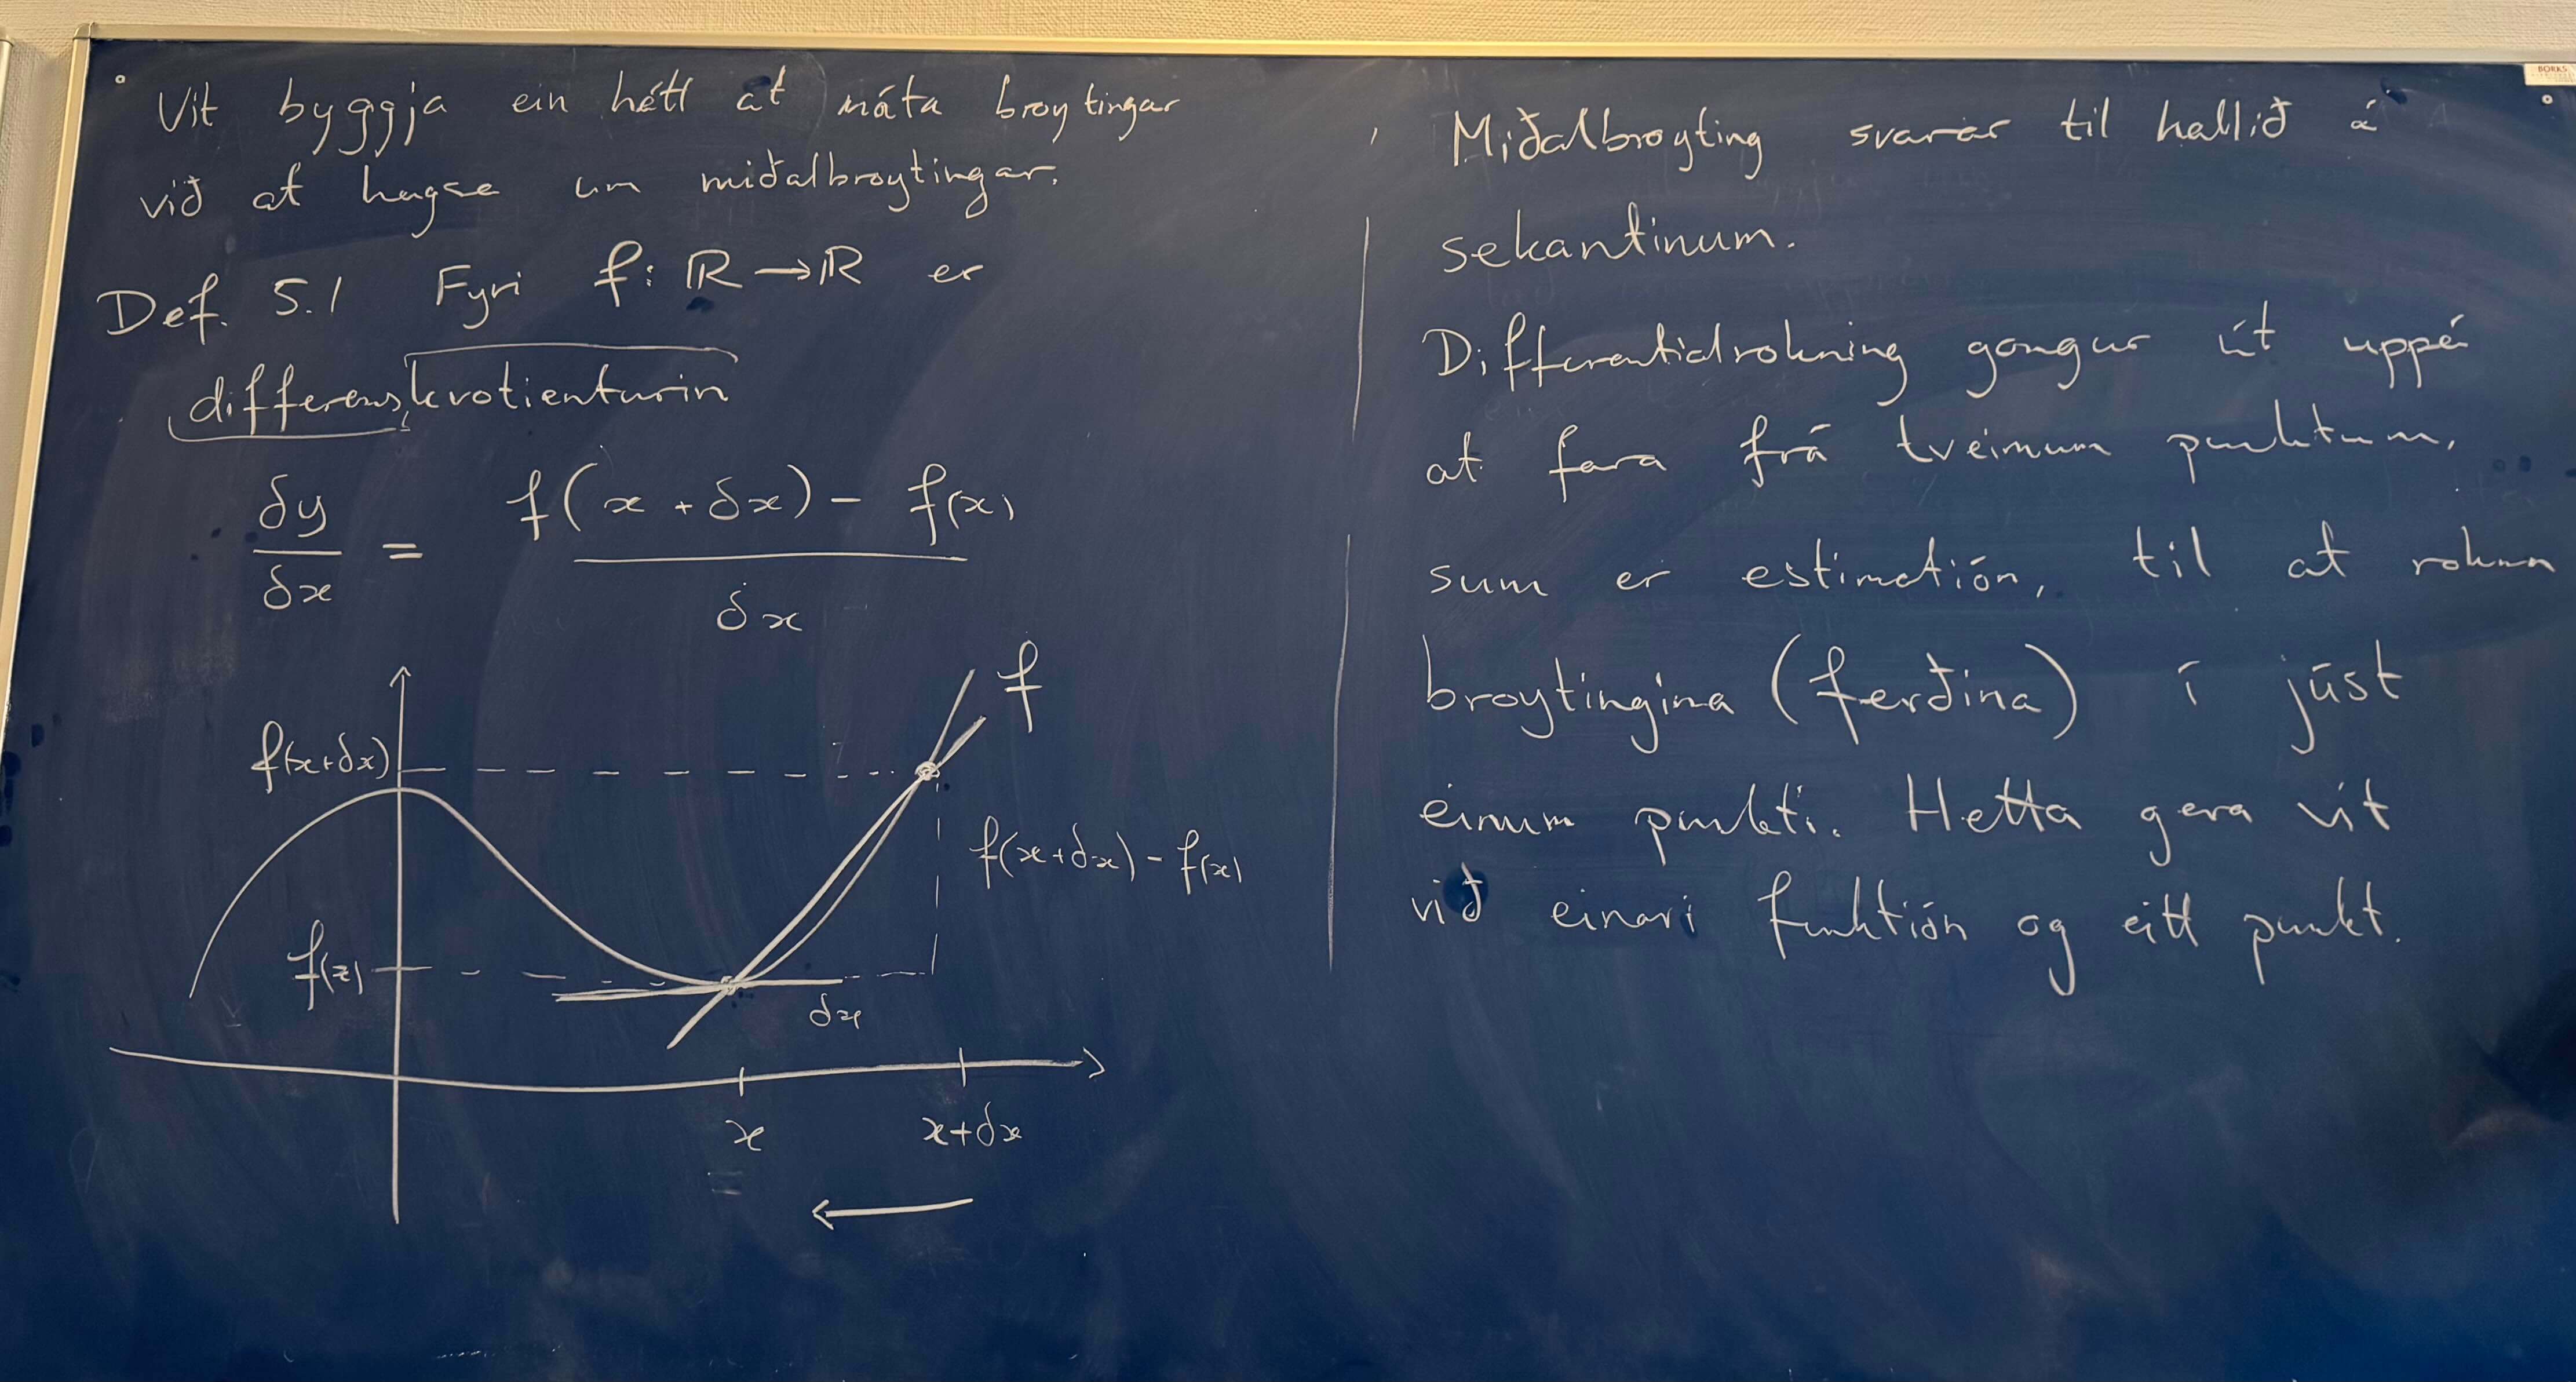 Vit byggja ein hátt at máta broytingar
við at hugsa um miðalbroytingar.
Def. 5.1 Fyri f: ℝ → ℝ er
differenskvotienturin
δy/δx = (f(x + δx) - f(x))/δx
f
f(x+δx)
f(x+δx) - f(x)
f(x)
δx
x x+δx
Miðalbroyting svarar til hallið á
sekantinum.
Differentialrokning gongur út uppá
at fara frá tveimum punktum,
sum er estimatión, til at rokna
broytingina (ferðina) í júst
einum punkti. Hetta gera vit
við einari funktión og eitt punkt.
BORKS